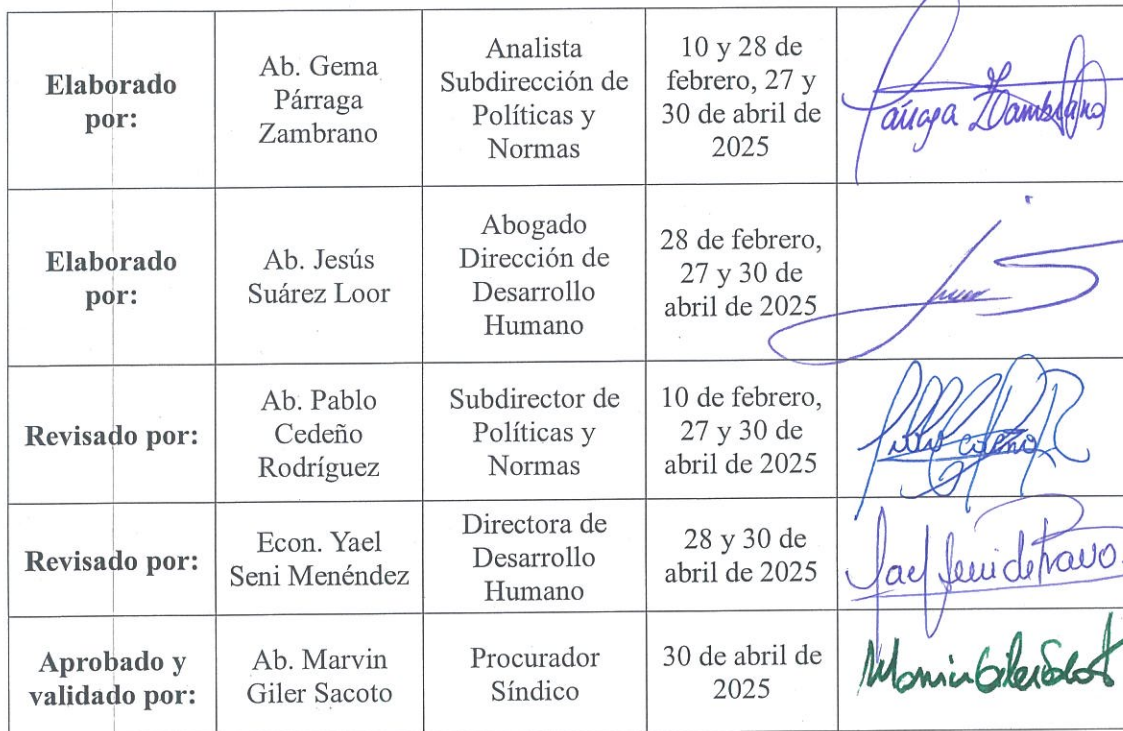 Elaborado
por:
Ab. Gema
Párraga
Zambrano
Analista
Subdirección de
Políticas y
Normas
10 y 28 de
febrero, 27 y
30 de abril de
2025
Párraga Zambrano
Elaborado
por:
Ab. Jesús
Suárez Loor
Abogado
Dirección de
Desarrollo
Humano
28 de febrero,
27 y 30 de
abril de 2025
Revisado por:
Ab. Pablo
Cedeño
Rodríguez
Subdirector de
Políticas y
Normas
10 de febrero,
27 y 30 de
abril de 2025
Revisado por:
Econ. Yael
Seni Menéndez
Directora de
Desarrollo
Humano
28 y 30 de
abril de 2025
Yael Seni de Bravo
Aprobado y
validado por:
Ab. Marvin
Giler Sacoto
Procurador
Síndico
30 de abril de
2025